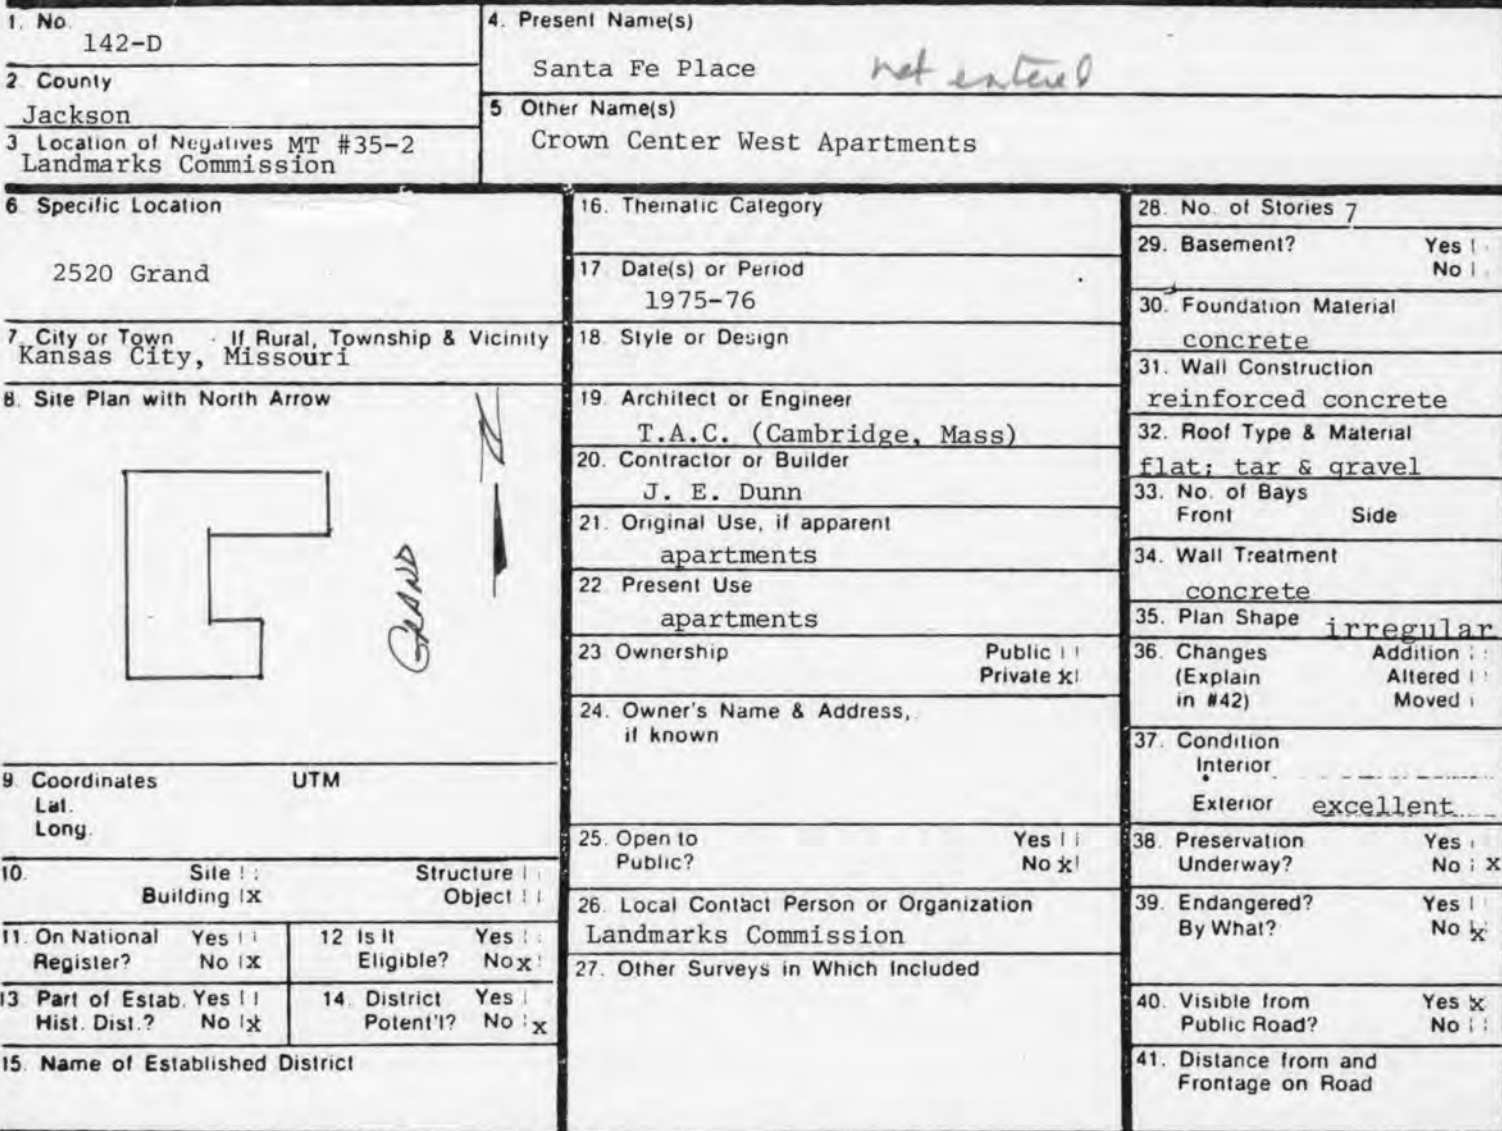 1. No.
142-D
2. County
Jackson
3. Location of Negatives MT #35-2
Landmarks Commission
4. Present Name(s)
Santa Fe Place not entered
5. Other Name(s)
Crown Center West Apartments
6. Specific Location
2520 Grand
7. City or Town If Rural, Township & Vicinity
Kansas City, Missouri
8. Site Plan with North Arrow
N
GRAND
9. Coordinates UTM
Lat.
Long.
10. Site Structure
Building X Object
11. On National Yes
Register? No X
12. Is It Yes
Eligible? No X
13. Part of Estab. Yes
Hist. Dist.? No X
14. District Yes
Potent'l? No X
15. Name of Established District
16. Thematic Category
17. Date(s) or Period
1975-76
18. Style or Design
19. Architect or Engineer
T.A.C. (Cambridge, Mass)
20. Contractor or Builder
J. E. Dunn
21. Original Use, if apparent
apartments
22. Present Use
apartments
23. Ownership Public
Private X
24. Owner's Name & Address,
if known
25. Open to Yes
Public? No X
26. Local Contact Person or Organization
Landmarks Commission
27. Other Surveys in Which Included
28. No. of Stories 7
29. Basement? Yes
No
30. Foundation Material
concrete
31. Wall Construction
reinforced concrete
32. Roof Type & Material
flat; tar & gravel
33. No. of Bays
Front Side
34. Wall Treatment
concrete
35. Plan Shape irregular
36. Changes Addition
(Explain Altered
in #42) Moved
37. Condition
Interior
Exterior excellent
38. Preservation Yes
Underway? No X
39. Endangered? Yes
By What? No X
40. Visible from Yes X
Public Road? No
41. Distance from and
Frontage on Road